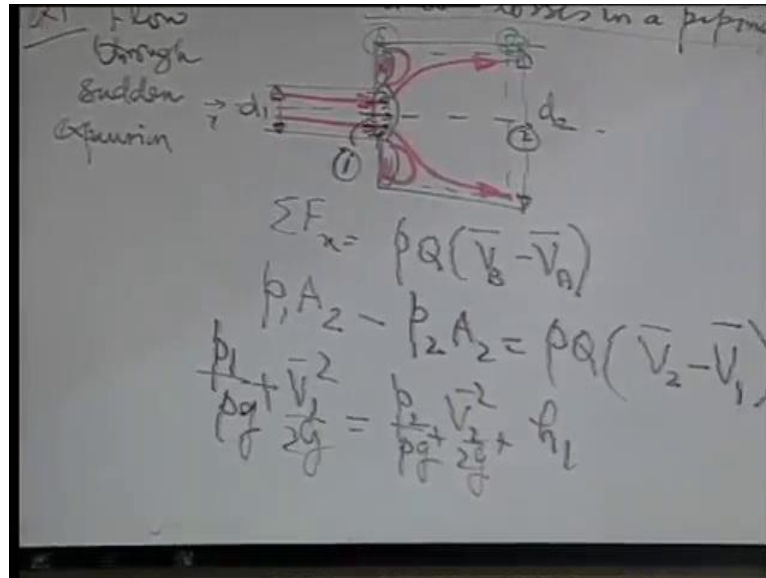 Flow losses in a piping
through
Sudden
expansion → d₁ d₂
①
②
ΣFₓ = ρQ(V̅_B − V̅_A)
p₁A₂ − p₂A₂ = ρQ(V̅₂ − V̅₁)
p₁/ρg + V̅₁²/2g = p₂/ρg + V̅₂²/2g + h_l